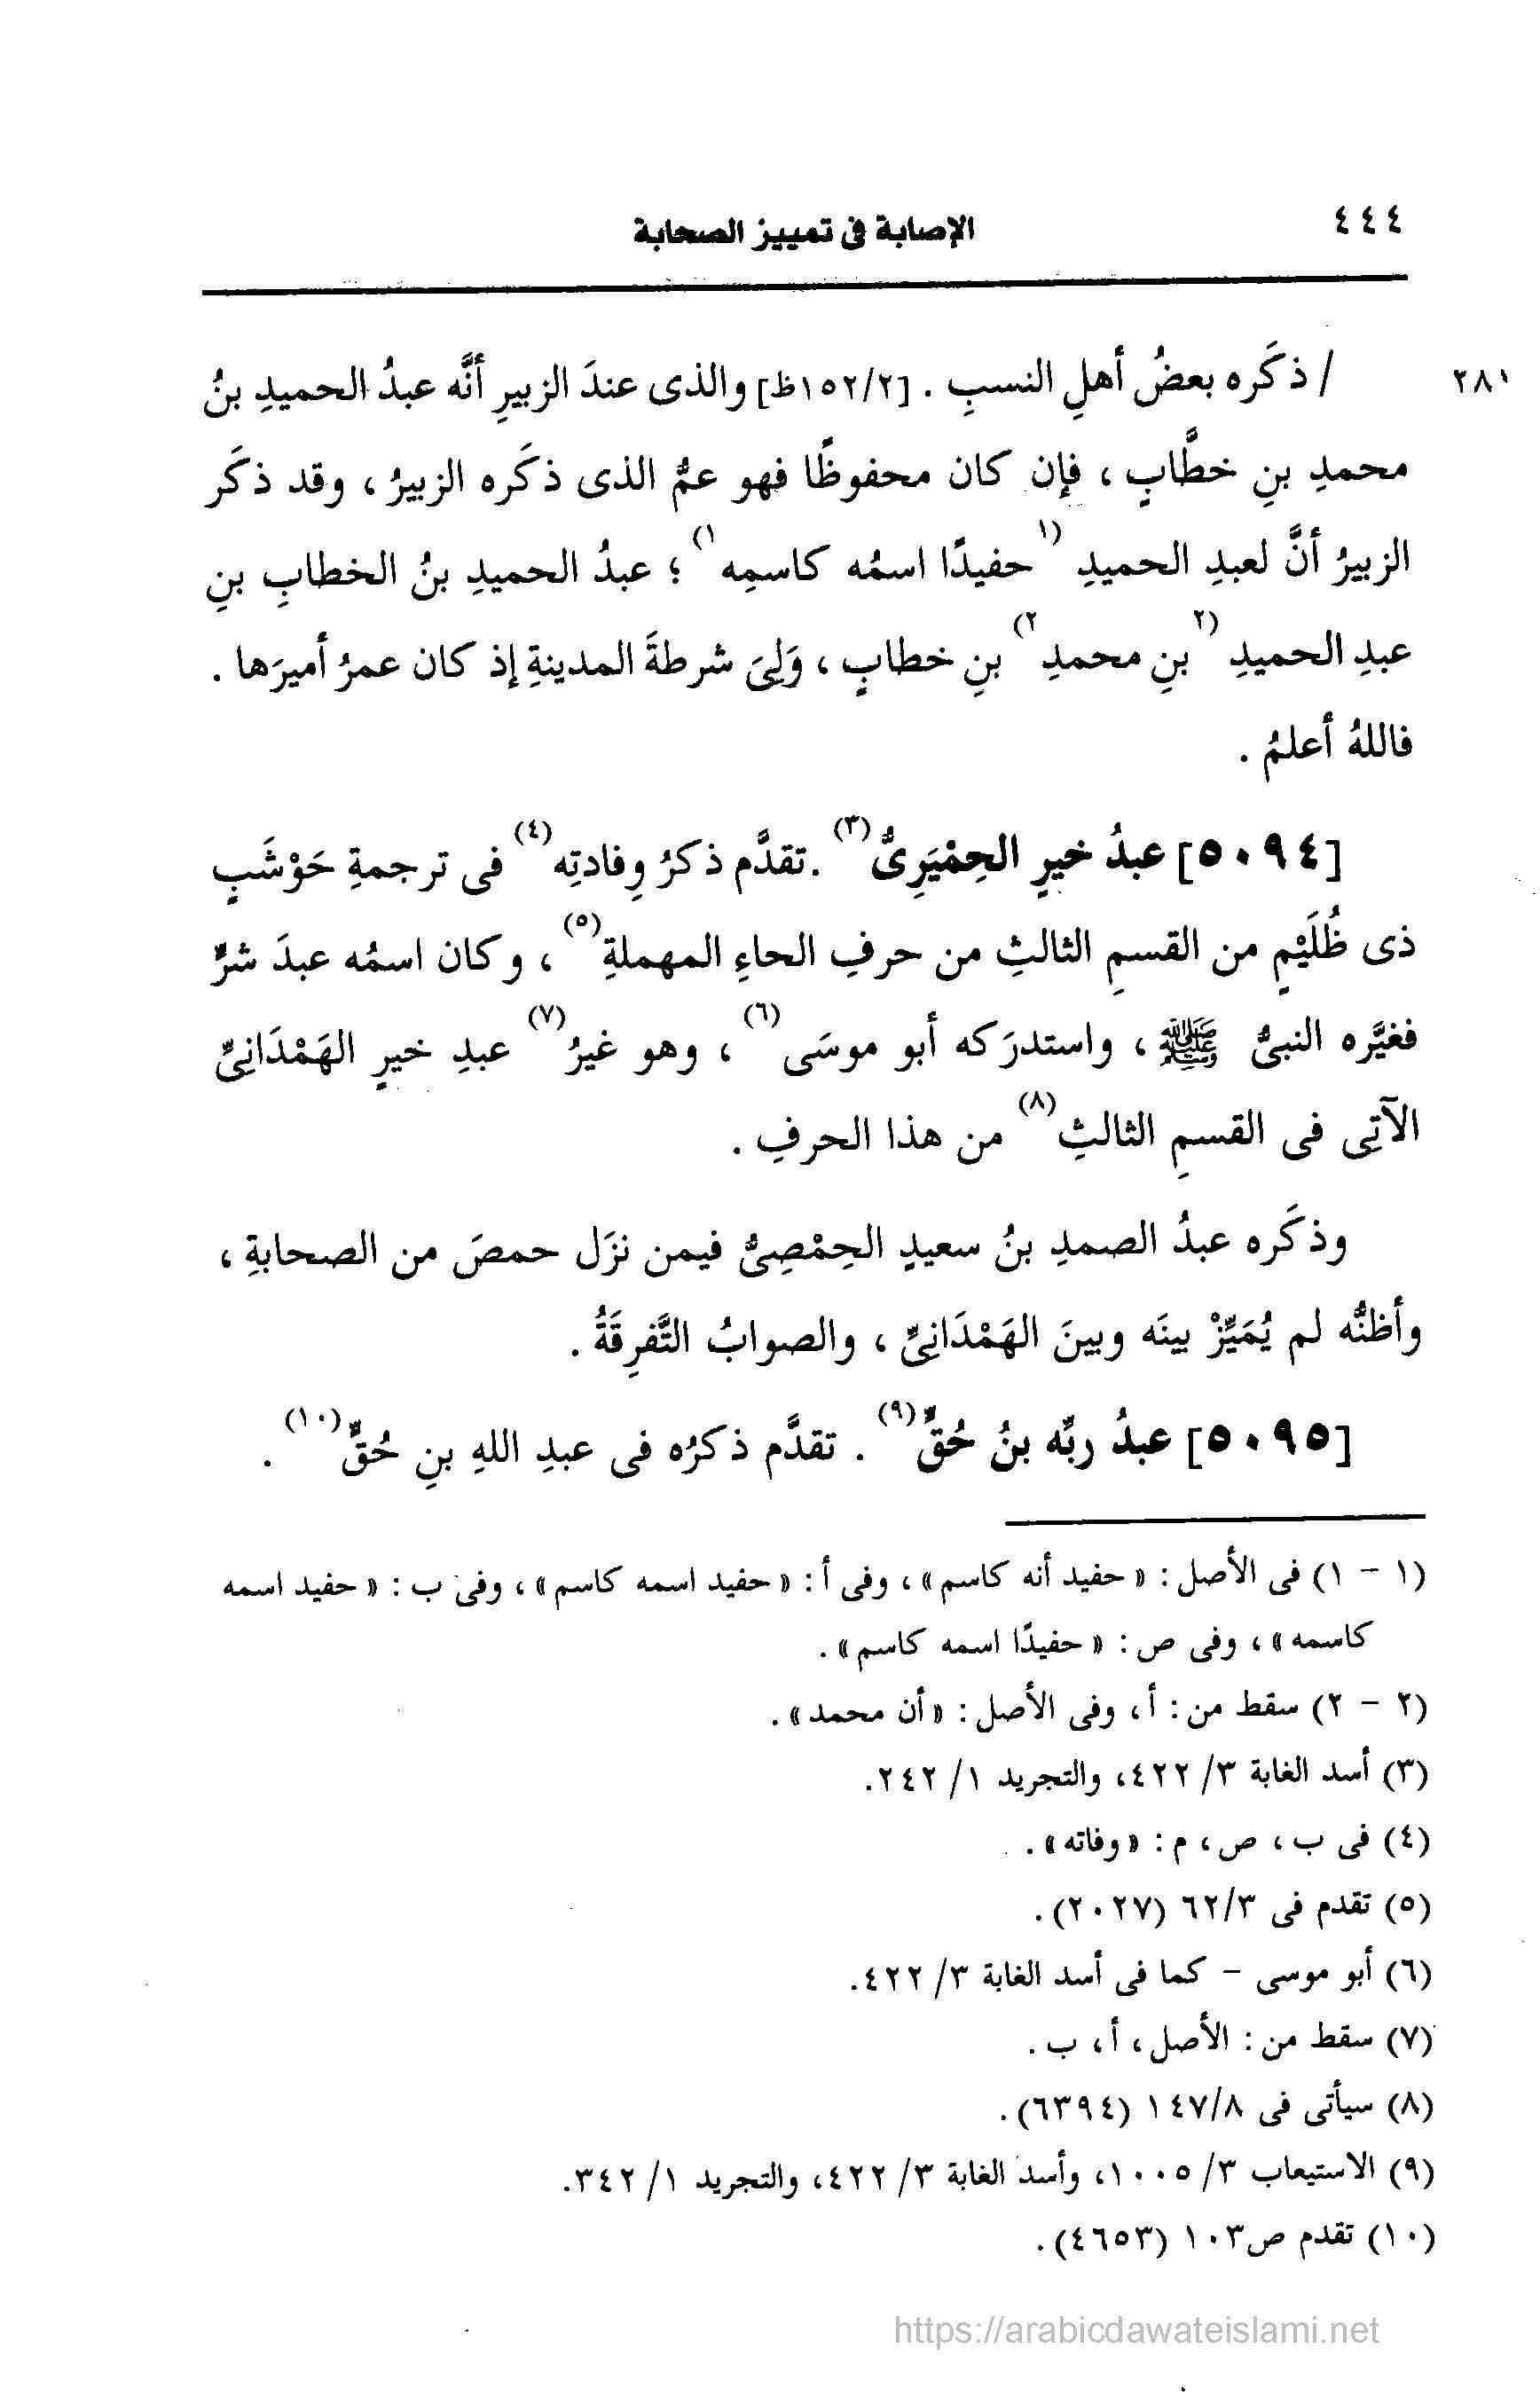 ٤٤٤
الإصابة فى تمييز الصحابة
٢٨١
/ ذكَره بعضُ أهلِ النسبِ . [١٥٢/٢ظ] والذى عندَ الزبيرِ أنَّه عبدُ الحميدِ بنُ
محمدِ بنِ خطَّابٍ ، فإن كان محفوظًا فهو عمُّ الذى ذكَره الزبيرُ ، وقد ذكَر
الزبيرُ أنَّ لعبدِ الحميدِ (١حفيدًا اسمُه كاسمِه١) ؛ عبدُ الحميدِ بنُ الخطابِ بنِ
عبدِ الحميدِ (٢بنِ محمدِ٢) بنِ خطابٍ ، وَلِىَ شرطةَ المدينةِ إذ كان عمرُ أميرَها .
فاللهُ أعلمُ .
[٥٠٩٤] عبدُ خيرٍ الحِمْيَرِىُّ(٣) . تقدَّم ذكرُ وِفادتِه(٤) فى ترجمةِ حَوْشَبٍ
ذى ظُلَيْمٍ من القسمِ الثالثِ من حرفِ الحاءِ المهملةِ(٥) ، وكان اسمُه عبدَ شرٍّ
فغيَّره النبىُّ ﷺ ، واستدرَكه أبو موسَى(٦) ، وهو غيرُ(٧) عبدِ خيرٍ الهَمْدَانِىِّ
الآتِى فى القسمِ الثالثِ(٨) من هذا الحرفِ .
وذكَره عبدُ الصمدِ بنُ سعيدٍ الحِمْصِىُّ فيمن نزَل حمصَ من الصحابةِ ،
وأظنُّه لم يُمَيِّزْ بينَه وبينَ الهَمْدَانِىِّ ، والصوابُ التَّفرِقَةُ .
[٥٠٩٥] عبدُ ربِّه بنُ حُقٍّ(٩) . تقدَّم ذكرُه فى عبدِ اللهِ بنِ حُقٍّ(١٠) .
(١ - ١) فى الأصل : « حفيد أنه كاسم » ، وفى أ : « حفيد اسمه كاسم » ، وفى ب : « حفيد اسمه
كاسمه » ، وفى ص : « حفيدًا اسمه كاسم » .
(٢ - ٢) سقط من : أ ، وفى الأصل : « أن محمد » .
(٣) أسد الغابة ٣/ ٤٢٢، والتجريد ١/ ٢٤٢.
(٤) فى ب ، ص ، م : « وفاته » .
(٥) تقدم فى ٦٢/٣ (٢٠٢٧) .
(٦) أبو موسى - كما فى أسد الغابة ٣/ ٤٢٢.
(٧) سقط من : الأصل ، أ ، ب .
(٨) سيأتى فى ١٤٧/٨ (٦٣٩٤) .
(٩) الاستيعاب ٣/ ١٠٠٥، وأسد الغابة ٣/ ٤٢٢، والتجريد ١/ ٣٤٢.
(١٠) تقدم ص١٠٣ (٤٦٥٣) .
https://arabicdawateislami.net